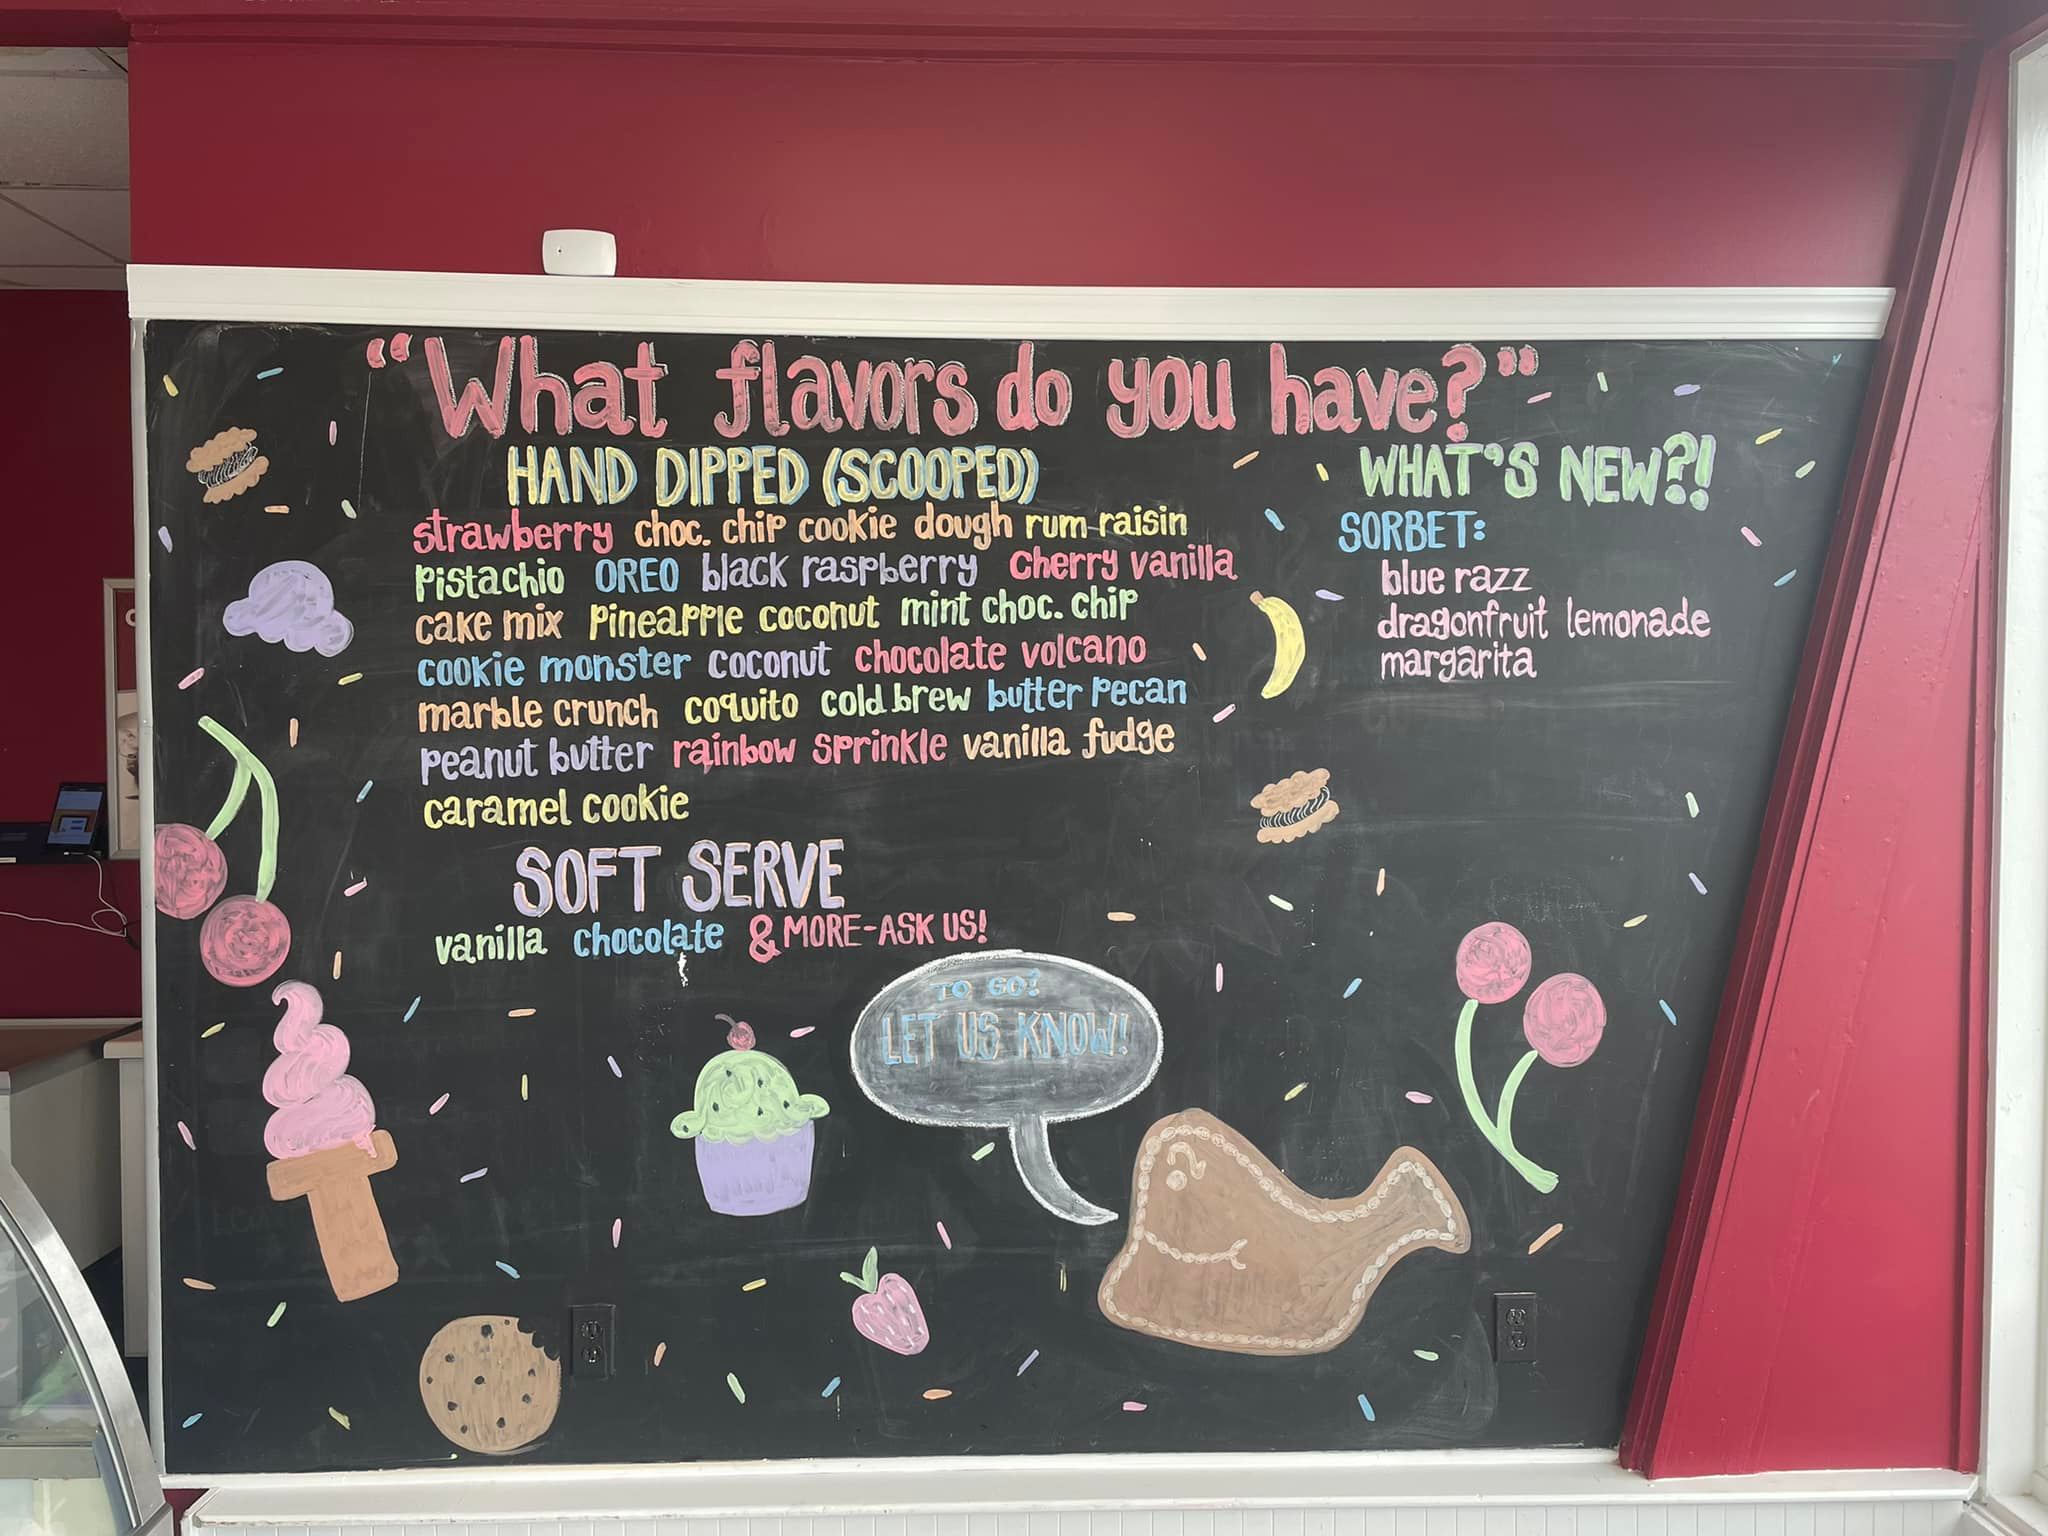 “What flavors do you have?”
HAND DIPPED (SCOOPED)
strawberry choc. chip cookie dough rum raisin
pistachio OREO black raspberry cherry vanilla
cake mix pineapple coconut mint choc. chip
cookie monster coconut chocolate volcano
marble crunch coquito cold brew butter pecan
peanut butter rainbow sprinkle vanilla fudge
caramel cookie
SOFT SERVE
vanilla chocolate & MORE-ASK US!
WHAT'S NEW?!
SORBET:
blue razz
dragonfruit lemonade
margarita
TO GO?
LET US KNOW!